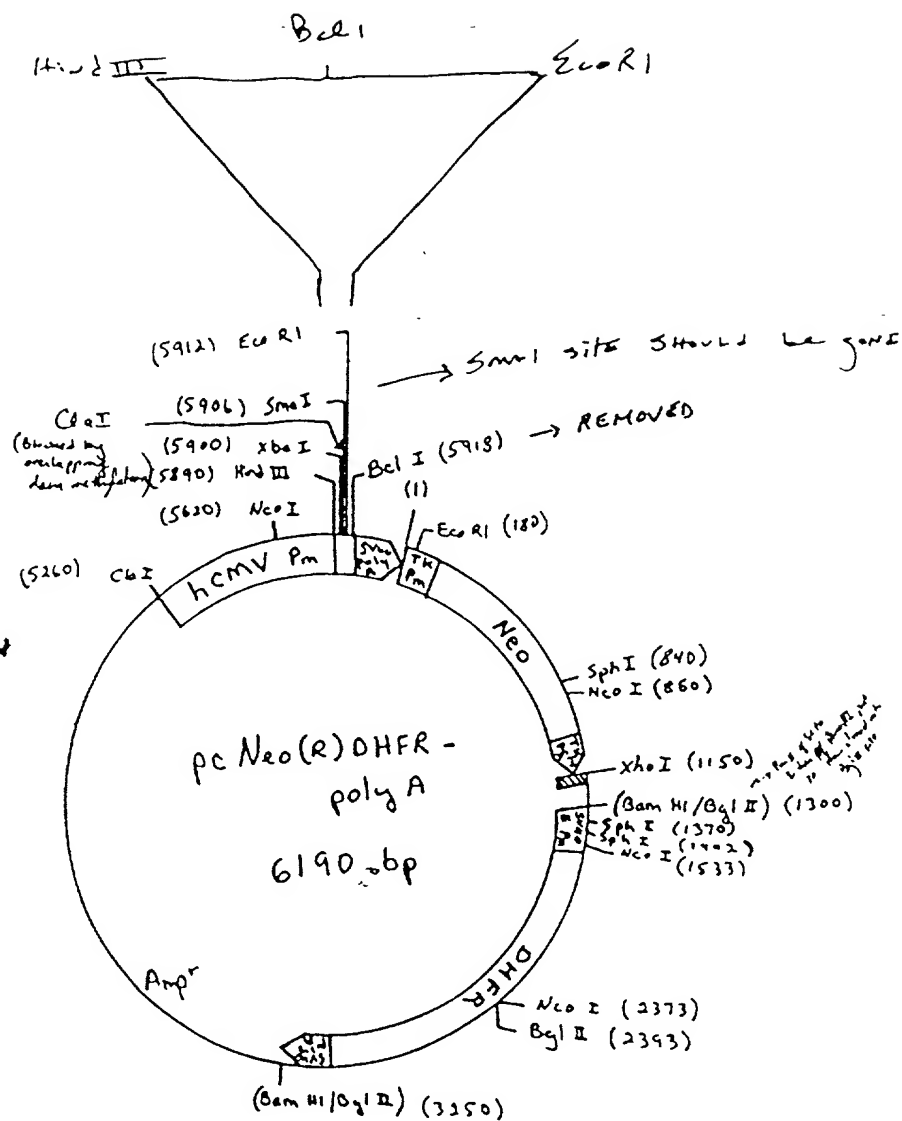 Bcl I
Hind III
EcoR1
(5912) Eco R1
→ SmaI site should be gone
(5906) Sma I
ClaI
(Blocked by
overlapping
dam methylation)
(5900) Xba I
(5890) Hind III
Bcl I (5918) → REMOVED
(1)
(5620) Nco I
EcoR1 (180)
(5260) Cla I
hCMV Pm
SV40
poly
A
TK
Pm
Neo
Sph I (840)
Nco I (860)
TK
Xho I (1150)
(Bam H1/Bgl II) (1300)
SV40
E Pm
Sph I (1370)
Sph I (1402)
Nco I
(1533)
pc Neo(R) DHFR -
poly A
6190 bp
DHFR
Ampr
Nco I (2373)
Bgl II (2393)
(Bam H1/Bgl II) (3250)